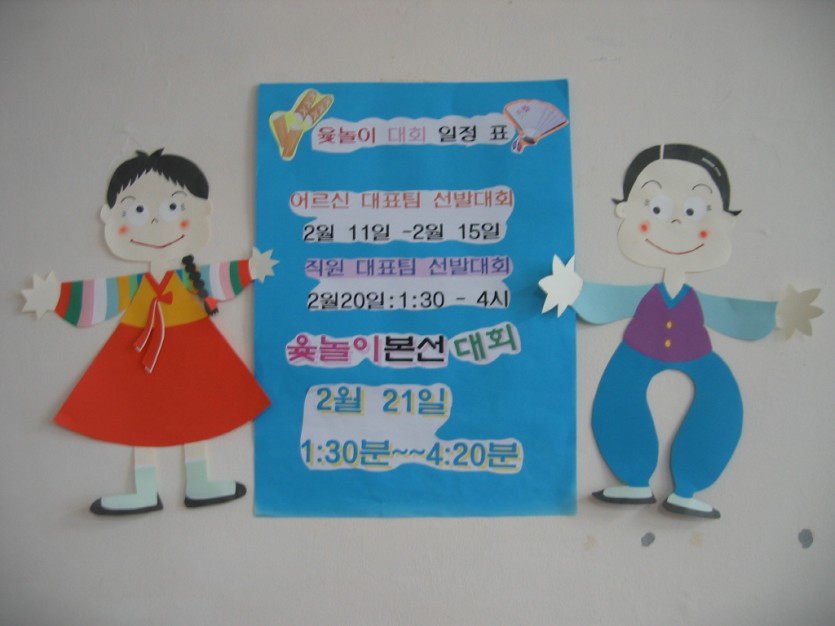 윷놀이 대회 일정 표
어르신 대표팀 선발대회
2월 11일 -2월 15일
직원 대표팀 선발대회
2월20일:1:30 - 4시
윷놀이본선대회
2월 21일
1:30분~~4:20분